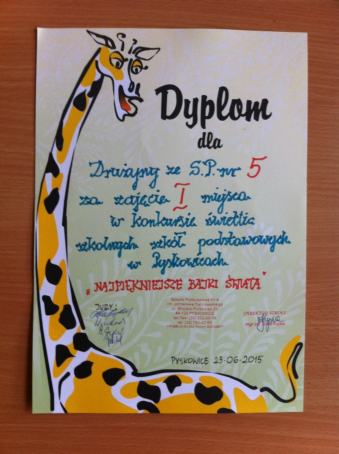 Dyplom
dla
Drużyny ze S.P. nr 5
za zajęcie I miejsca
w konkursie świetlic
szkolnych szkół podstawowych
w Pyskowicach
„NAJPIĘKNIEJSZE BAJKI ŚWIATA"
JURY:
PYSKOWICE 23-06-2015